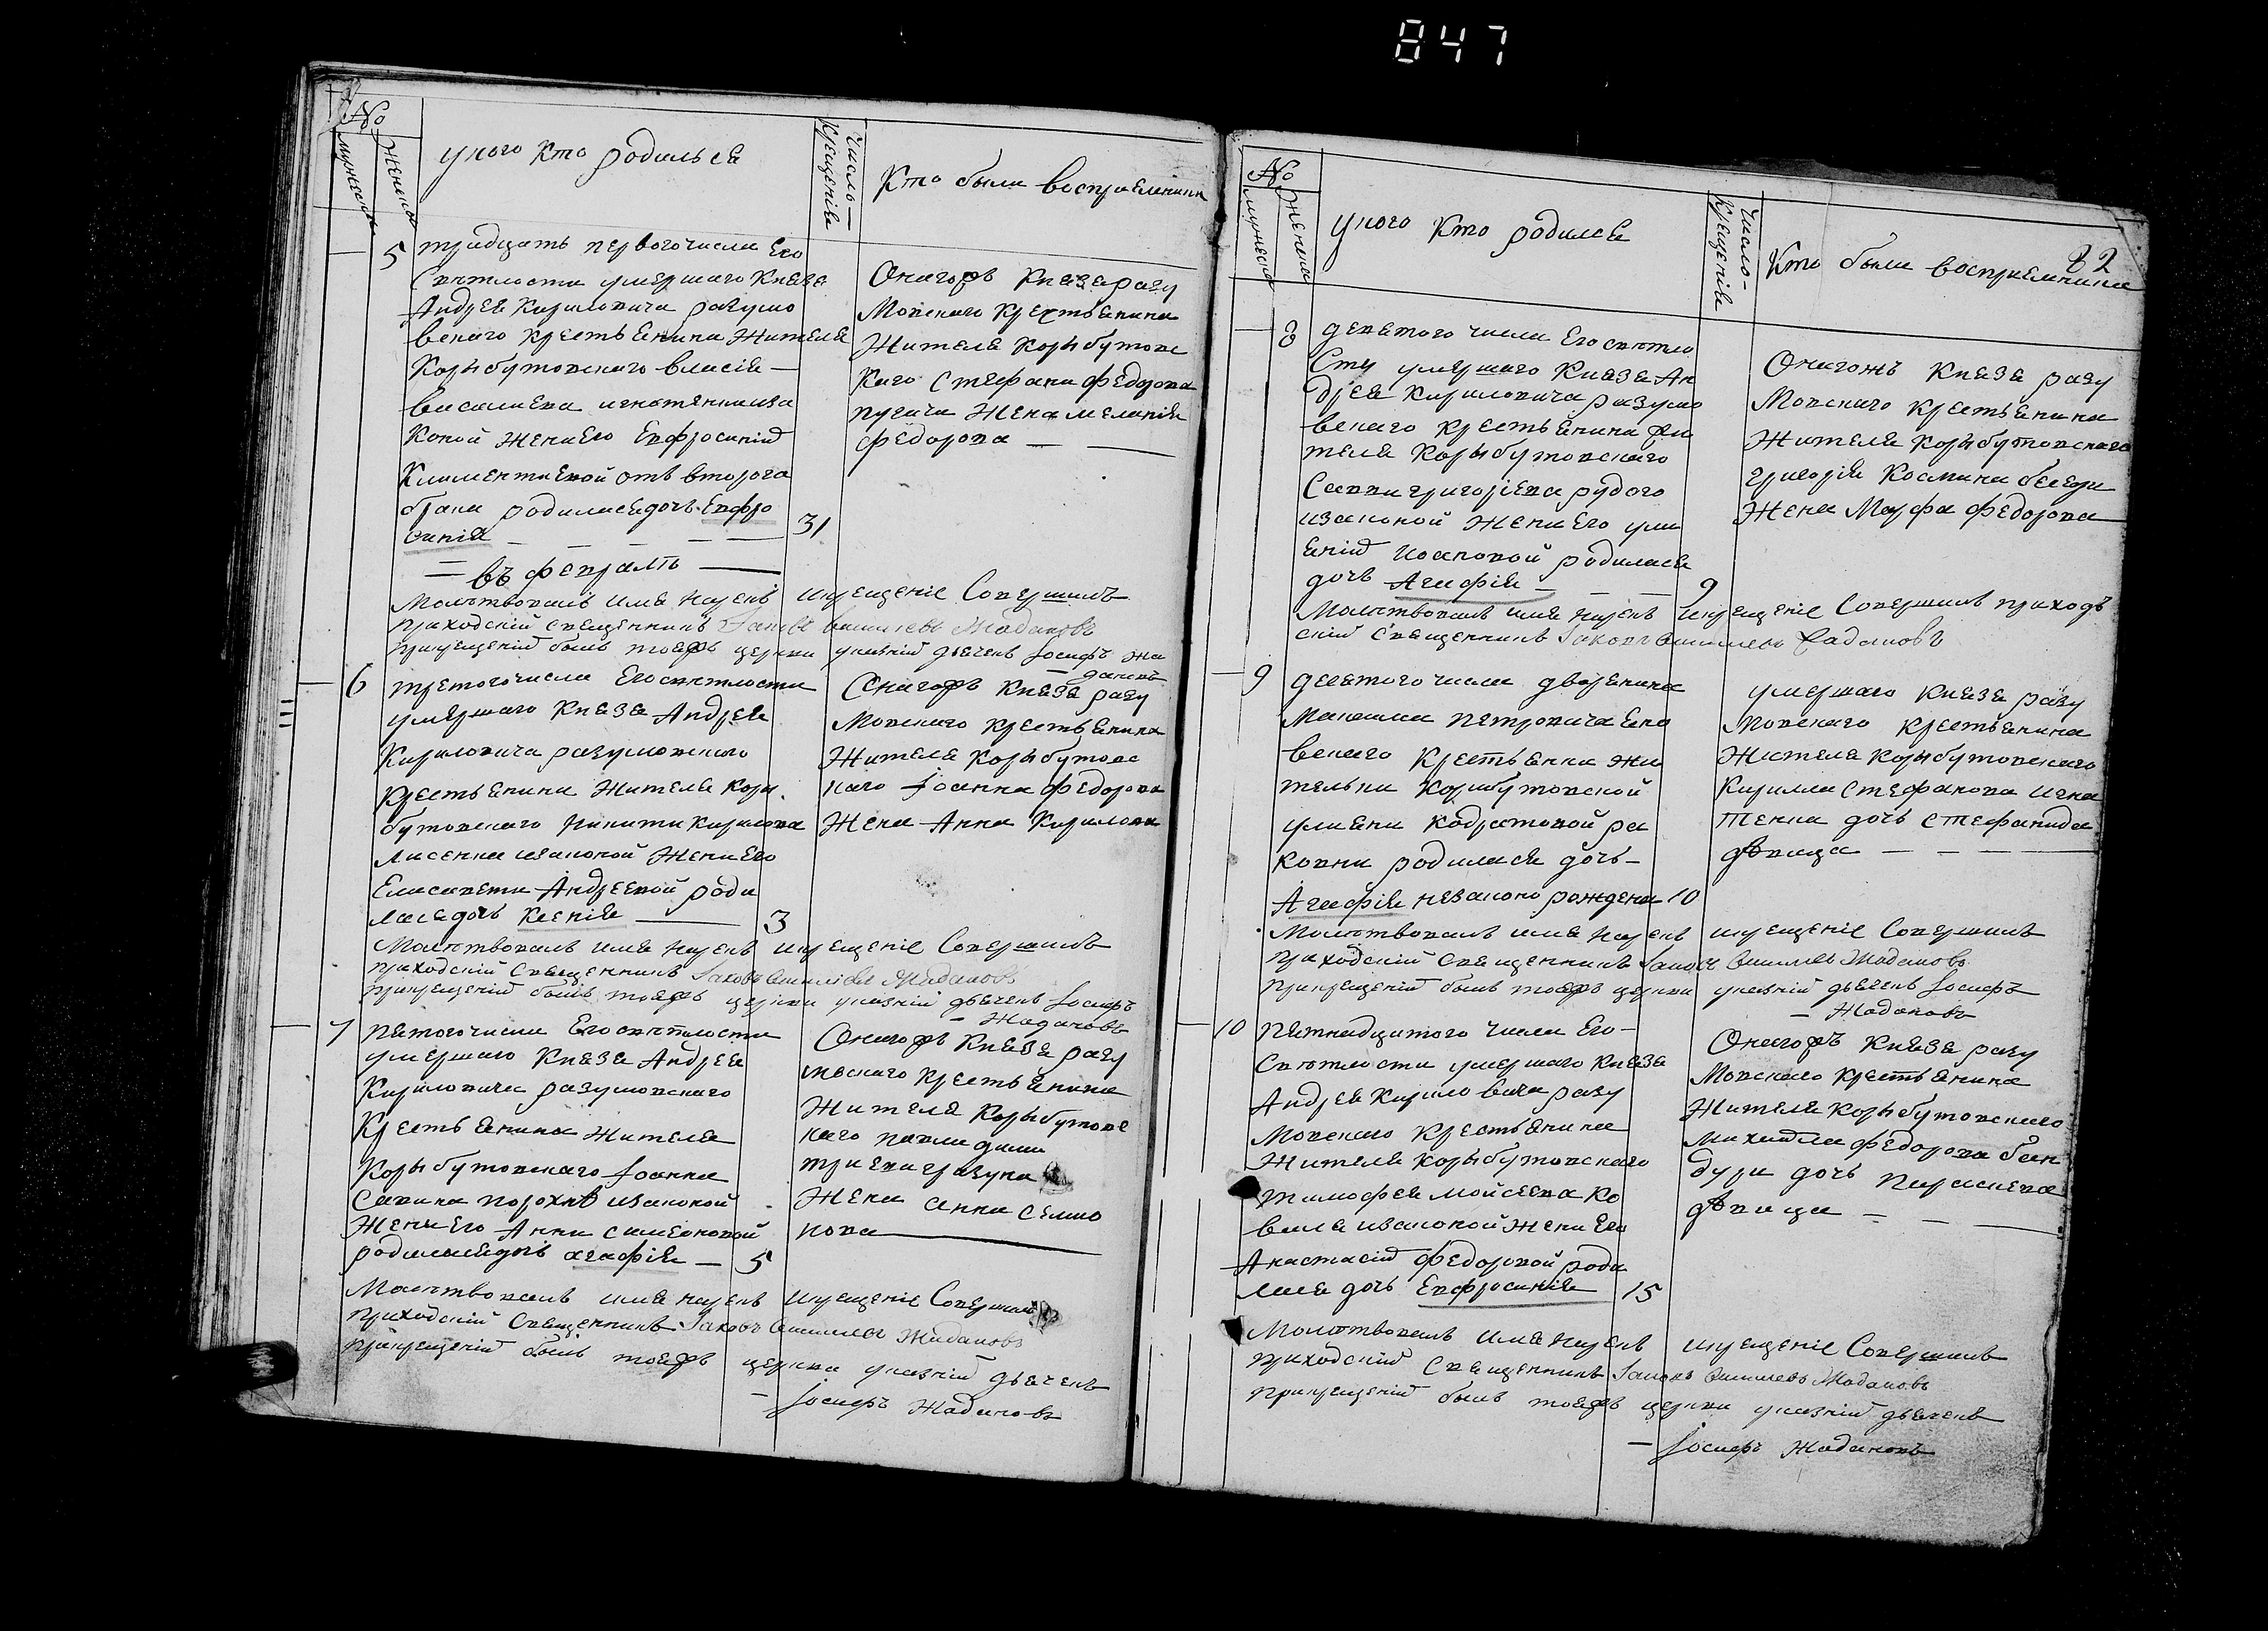 847
№
мужеска
женска
у кого кто родилься
Число
крещенія
Кто были восприемники
5
тридцять первого числа Его
Свѣтлости умершаго Князя
Андрея Кириловича разумо
вского крестьянина Жителя
Корыбутовскаго власія —
василиева
коной жени Его Евфросиніи
Климентиевой отъ второго
брака родилася дочь Евфро
синія — — — — 31
Онагожъ Князя разу
Мовскаго Крестьянина
Жителя Корыбутовс
каго Стефана Федорова
Жена меланія
федорова — —
— въ февралѣ —
Молитвовалъ имя нарекъ и крещеніе Совершилъ
приходскій священникъ Іаковъ васильевъ Жадановъ
при крещеніи былъ тояжъ церкви указній дьячекъ Іосифъ Жа
дановъ
6
третого числа Его свѣтлости
умершаго Князя Андрея
Кириловича разумовского
крестьянина Жителя Коры
бутовскаго никити Кирилова
лисенка изаконой жени Его
Елисавети Андреевой роди
лася дочь Ксенія — 3
Онагожъ Князя разу
Мовскаго крестьянина
Жителя Корыбутовс
каго Іоанна Федорова
Жена Анна Кирилова
Молитвовалъ имя нарекъ и крещеніе Совершилъ
приходскій Священникъ Іаковъ васильевъ Жадановъ
при крещеніи былъ тояжъ церкви указній дьячекъ Іосифъ
— Жадановъ
7
пятого числа Его свѣтлости
умершаго Князя Андрея
Кириловича разумовскаго
Крестьянина жителя
Корыбутовскаго Іоанна
Савина порохнѣ изаконой
Жени Его Анни симеоновой
родилася дочь агафія — 5
Онагожъ Князя разу
мвскаго крестьянина
Жителя Корыбутовс
каго павла дими
триева
Жена анна семио
нова
Молитвовалъ имя нарекъ и крещеніе Совершилъ
приходскій Священникъ Іаковъ васильевъ Жадановъ
при крещеніи былъ тояжъ церкви указній дьячекъ
— Іосифъ Жадановъ
№
мужеска
женска
у кого кто родился
Число
крещенія
Кто были восприемники
82
8
девятого числа Его свѣтло
Сти умершаго Князя Ан
дрея Кириловича разумо
вскаго крестьянина жи
теля Корыбутовскаго
Савви григоріева рудого
изаконой жени Его ули
яніи иоановой родилася
дочь Агафія — — — 9
Онагожъ Князя разу
Мовскаго крестьянина
Жителя Корыбутовскаго
григорія Космина
Жена Марфа Федорова
Молитвовалъ имя нарекъ и крещеніе Совершилъ приход
скій Священникъ Іаковъ васильевъ Жадановъ
9
десятого числа дворянина
петровича
вскаго Крестьянки жи
тельки Корибутовской
улияни Кодратовой ра
ковни родилася дочь —
Агафія незаконо рождена 10
умершаго Князя разу
мовскаго крестьянина
Жителя Корыбутовскаго
Кирилла Стефанова игна
тенка дочь Стефанида
дѣвица — — — —
Молитвовалъ имя нарекъ и крещеніе Совершилъ
приходскій Священникъ Іаковъ васильевъ Жадановъ
при крещеніи былъ тояжъ церкви указній дьячекъ Іосифъ
— Жадановъ
10
пятнадцятого числа Его —
Свѣтлости умершаго Князя
Андрея Кириловича разу
Мовскаго крестьянина
Жителя Корыбутовскаго
тимофея мойсеева Ко
валя изаконой жени Его
Анастасіи Федоровой роди
лася дочь Евфросинія 15
Онагожъ Князя разу
Мовскаго Крестьянина
Жителя Корыбутовскаго
михаила федорова бан
дури дочь параскева
дѣвица — — —
Молитвовалъ имя нарекъ и крещеніе Совершилъ
приходскій Священникъ Іаковъ васильевъ Жадановъ
при крещеніи былъ тояжъ церкви указній дьячекъ
— Іосифъ Жадановъ